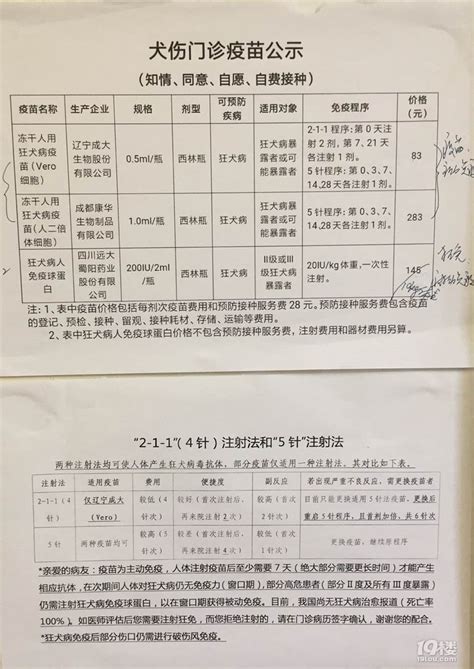 犬伤门诊疫苗公示
（知情、同意、自愿、自费接种）
疫苗名称 生产企业 规格 剂型 可预防疾病 适用对象 免疫程序 价格（元）
冻干人用狂犬病疫苗（Vero细胞） 辽宁成大生物股份有限公司 0.5ml/瓶 西林瓶 狂犬病 狂犬病暴露者或可能暴露者 2-1-1程序：第0天注射2剂，第7、21天各注射1剂。 5针程序：第0、3、7、14、28天各注射1剂。 83
冻干人用狂犬病疫苗（人二倍体细胞） 成都康华生物制品有限公司 1.0ml/瓶 西林瓶 狂犬病 狂犬病暴露者或可能暴露者 5针程序：第0、3、7、14.28天各注射1剂。 283
狂犬病人免疫球蛋白 四川远大蜀阳药业股份有限公司 200IU/2ml/瓶 西林瓶 狂犬病 II级或III级狂犬病暴露者 20IU/kg体重，一次性注射。 145
注：1、表中疫苗价格包括每剂次疫苗费用和预防接种服务费28元。预防接种服务费包含疫苗
的登记、预检、接种、留观、接种耗材、存储、运输等费用。
2、表中狂犬病人免疫球蛋白价格不包含预防接种服务费，注射费用和器材费用另算。
“2-1-1”（4针）注射法和“5针”注射法
两种注射法均可使人体产生狂犬病毒抗体，部分疫苗仅适用一种注射法，其对比如下表。
注射法 适用疫苗 费用 便捷度 副反应 若出现严重不良反应，需更换疫苗者
2-1-1（4针） 仅辽宁成大（Vero） 较低（4针次） 较好（首次注射后，再来院注射2次） 较高（首次2针） 目前只能更换适用5针法疫苗，更换后重启5针程序，且首剂加倍，共6针次
5针 两种疫苗均可 较高（5针次） 较差（首次注射后，再来院注射4次） 较低（首次1针） 更换疫苗，继续原程序
*亲爱的病友：疫苗为主动免疫，人体注射疫苗后至少需要7天（绝大部分需要更长时间）才能产生
相应抗体，在次期间人体对狂犬病仍无免疫力（窗口期），部分高危患者（部分II度及所有III度暴露）
仍需注射狂犬病人免疫球蛋白，以在窗口期获得被动免疫。目前，我国尚无狂犬病治愈报道（死亡率
100%）。如医师评估后您需要注射狂免，而您拒绝注射的，请在门诊病历签字确认，谢谢您的配合。
*狂犬病免疫后部分伤口仍需进行破伤风免疫。
19楼
19lou.com